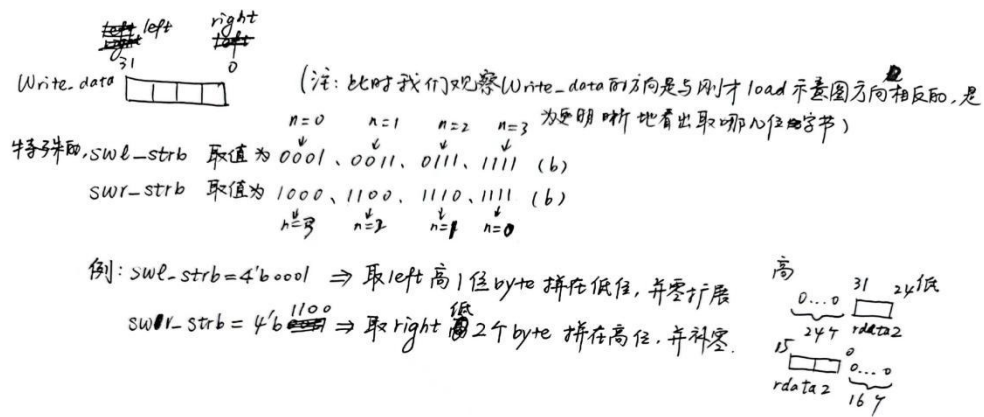 left right
31 0
Write_data
(注：此时我们观察Write_data的方向是与刚才load示意图方向相反的，是
为更明晰地看出取哪几位字节)
n=0 n=1 n=2 n=3
特殊的，swl_strb 取值为 0001、0011、0111、1111 (b)
swr_strb 取值为 1000、1100、1110、1111 (b)
n=3 n=2 n=1 n=0
例：swl_strb=4'b0001 ⇒ 取left高1位byte拼在低位，并零扩展
swr_strb = 4'b1100 ⇒ 取right低2个byte拼在高位，并补零.
高 31 24 低
0...0
24个 rdata2
15 0
0...0
rdata2 16个